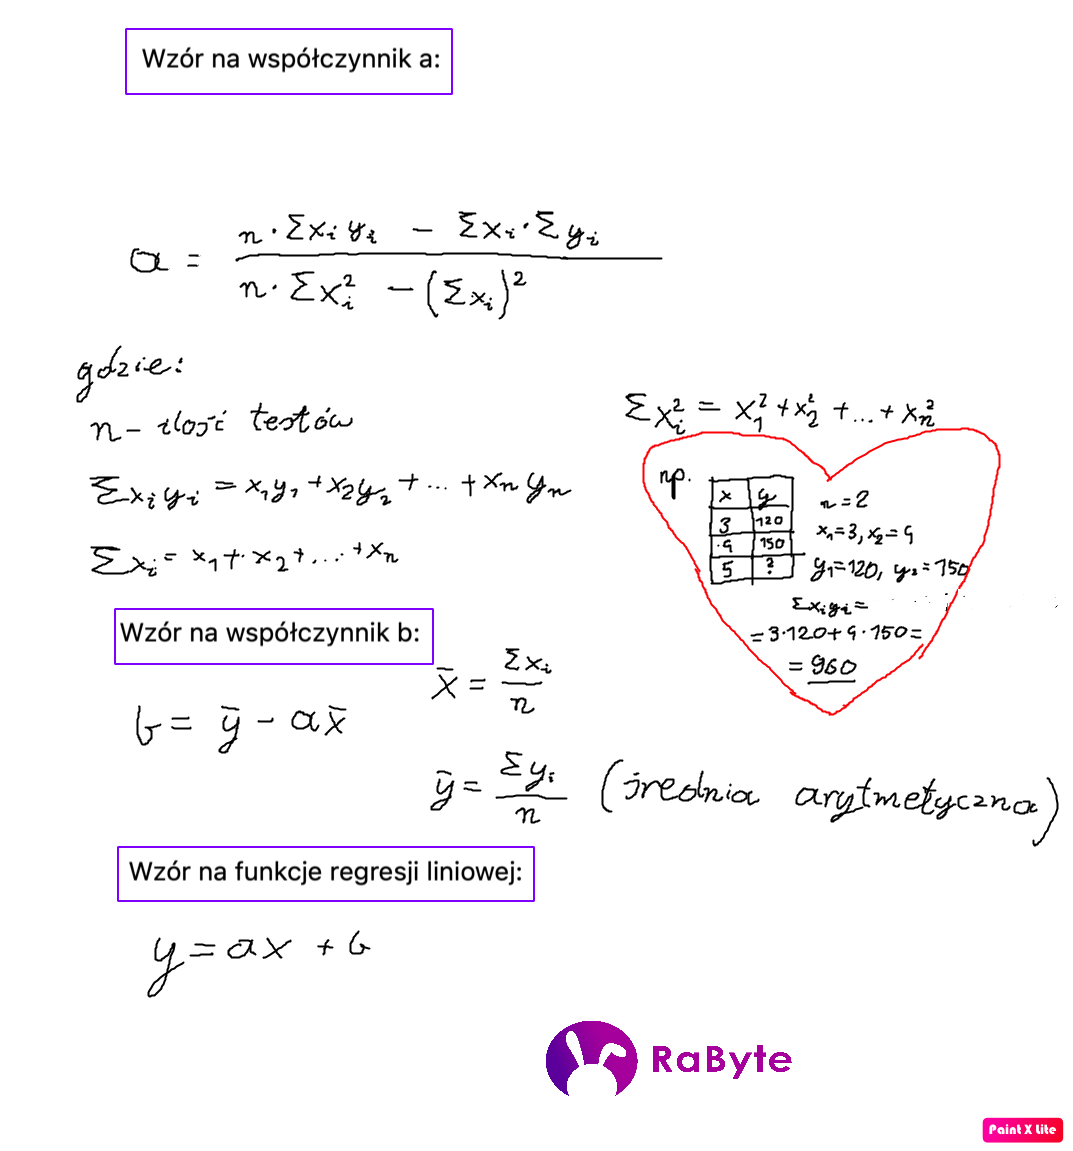 Wzór na współczynnik a:
a = (n · Σxᵢyᵢ − Σxᵢ · Σyᵢ) / (n · Σxᵢ² − (Σxᵢ)²)
gdzie:
n - ilość testów
Σxᵢyᵢ = x₁y₁ + x₂y₂ + ... + xₙyₙ
Σxᵢ = x₁ + x₂ + ... + xₙ
Σxᵢ² = x₁² + x₂² + ... + xₙ²
np.
x y
3 120
4 150
5 ?
n = 2
x₁ = 3, x₂ = 4
y₁ = 120, y₂ = 150
Σxᵢyᵢ =
= 3·120 + 4·150 =
= 960
Wzór na współczynnik b:
b = ȳ − ax̄
x̄ = Σxᵢ / n
ȳ = Σyᵢ / n (średnia arytmetyczna)
Wzór na funkcje regresji liniowej:
y = ax + b
RaByte
Paint X Lite